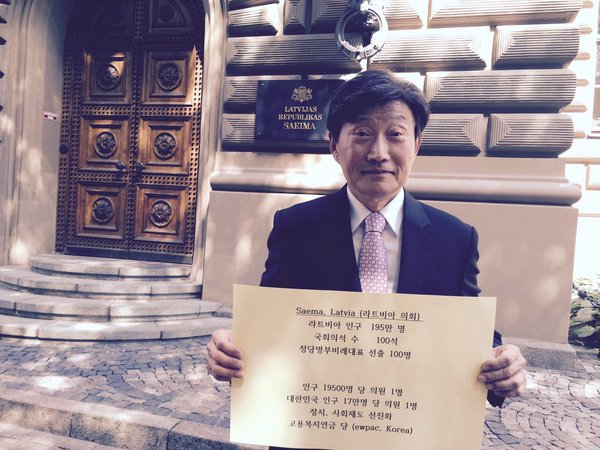 LATVIJAS
REPUBLIKAS
SAEIMA
Saema, Latvia (라트비아 의회)
라트비아 인구 195만 명
국회의석 수 100석
정당명부비례대표 선출 100명
인구 19500명 당 의원 1명
대한민국 인구 17만명 당 의원 1명
정치, 사회제도 선진화
고용복지연금 당 (ewpac, Korea)